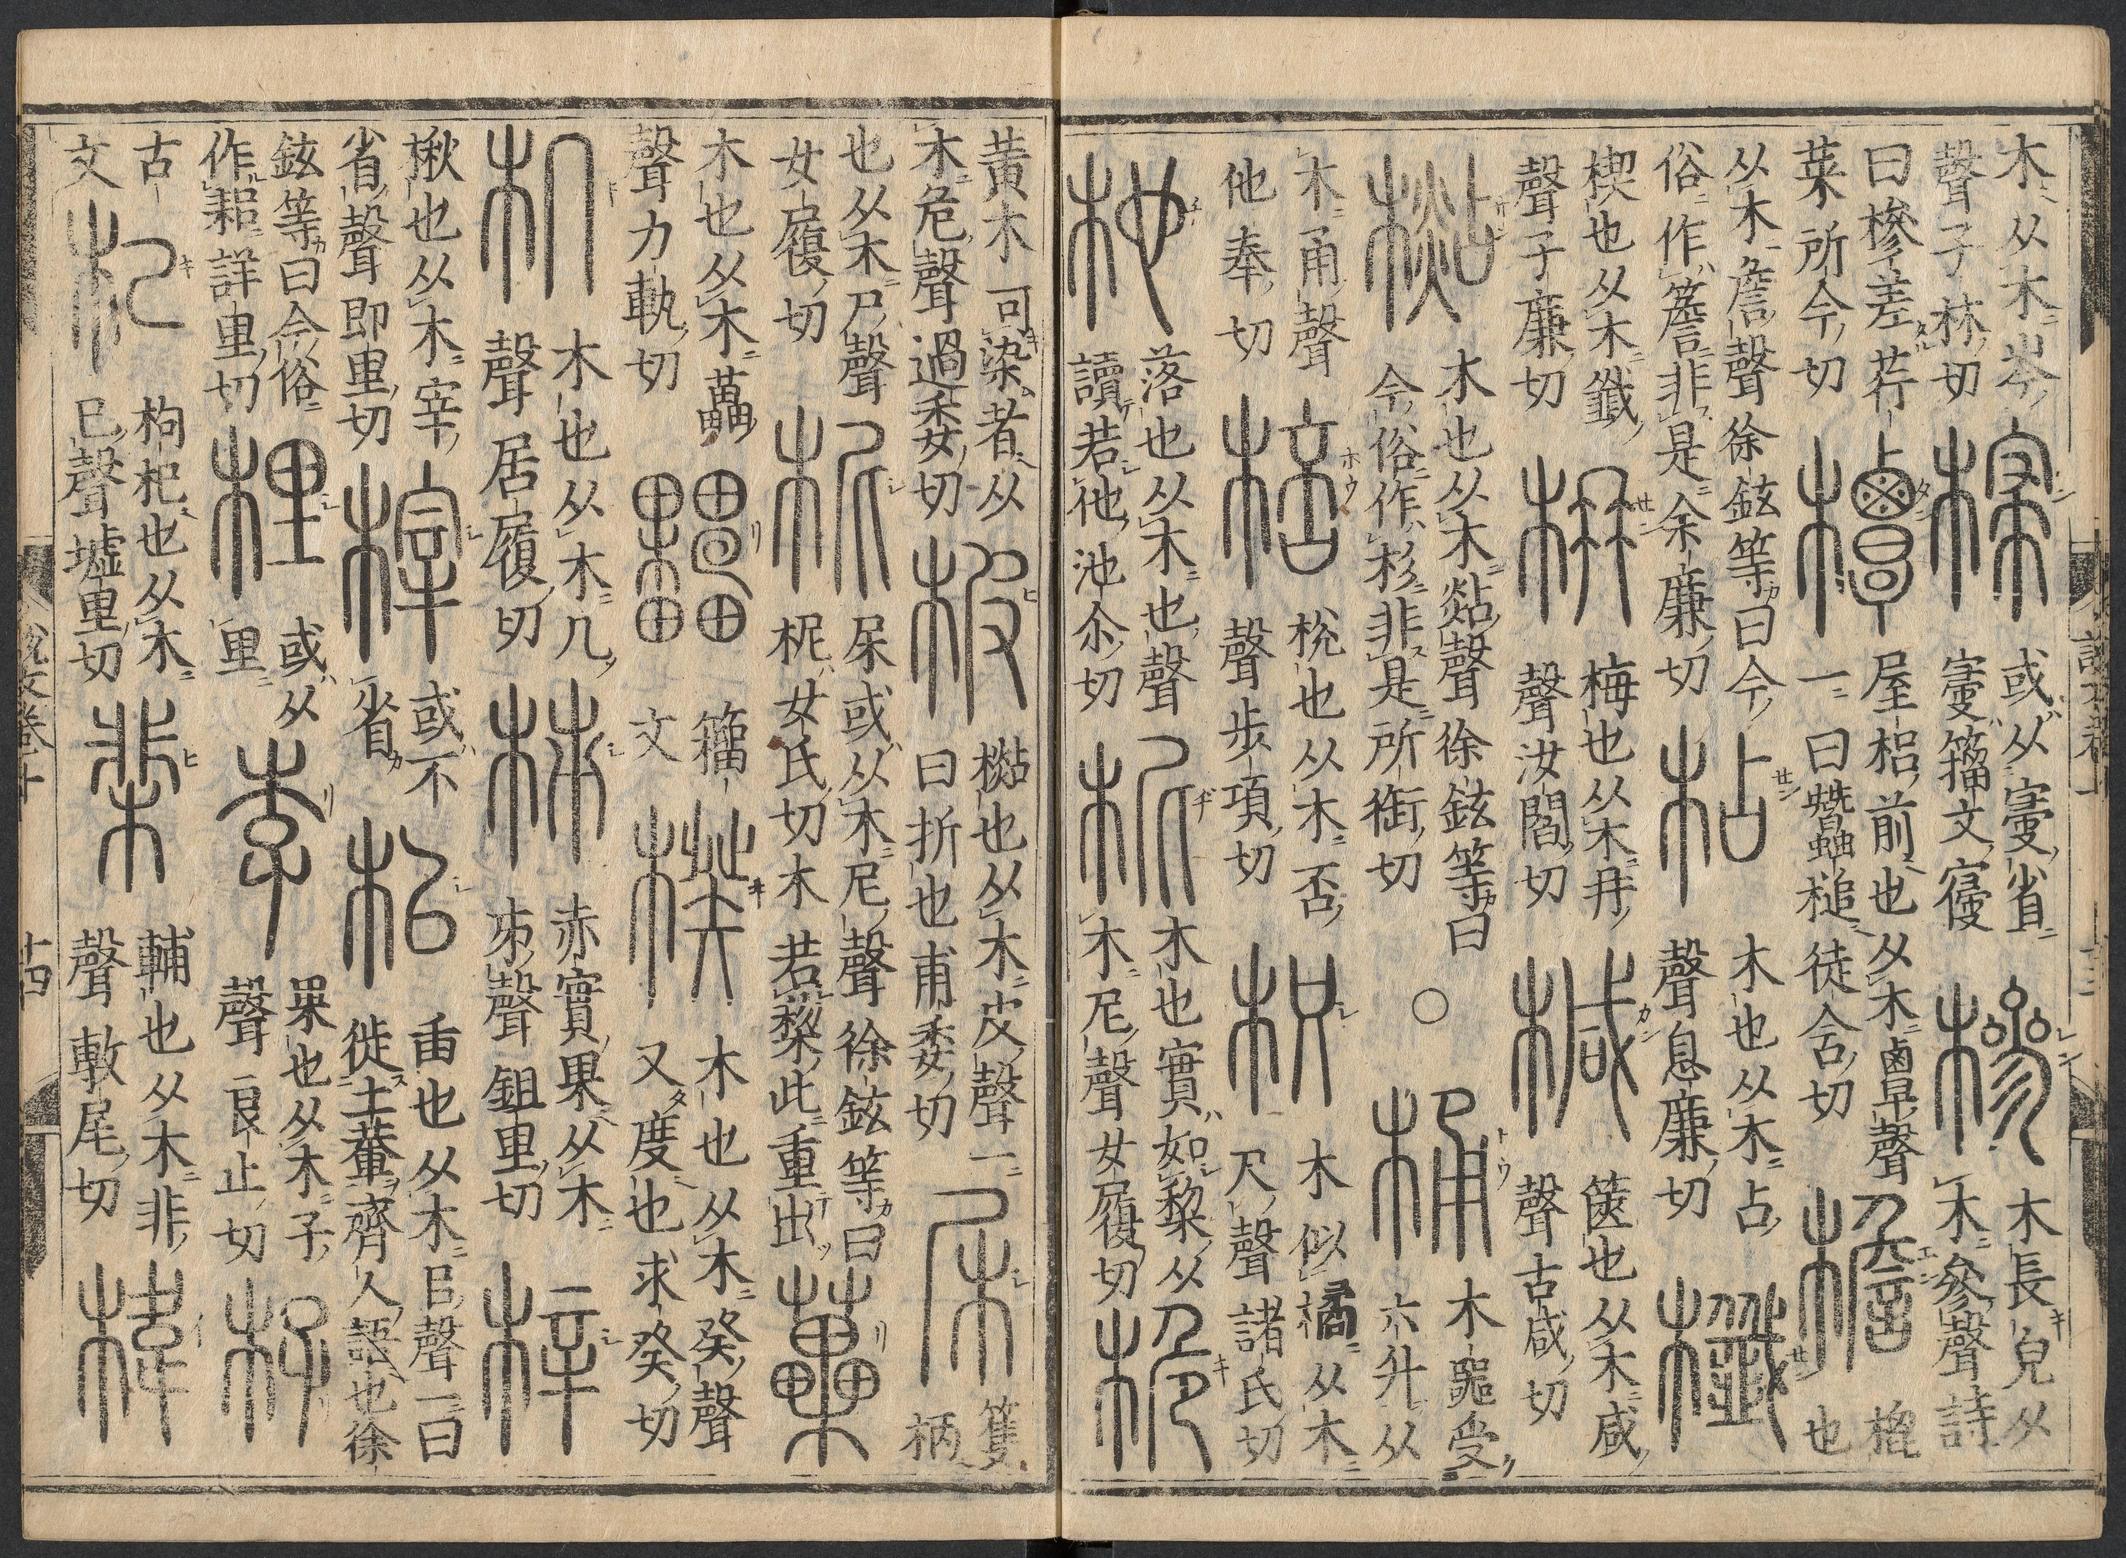 木从木岑
聲子林切
或从寑省
寑籀文寑
槮
木長皃从
木參聲詩
曰槮差荇
菜所今切
橝
屋梠前也从木覃聲
一曰蠶槌徒含切
檐
㮰
也
从木詹聲徐鉉等曰今
俗作簷非是余廉切
枮
木也从木占
聲息廉切
櫼
楔也从木韱
聲子廉切
枏
梅也从木冉
聲汝閻切
椷
篋也从木咸
聲古咸切
㯳
木也从木聲徐鉉等曰
今俗作杉非是所銜切
○
桶
木受
六升从
木甬聲
他奉切
棓
梲也从木咅
聲步項切
枳
木似橘从木
只聲諸氏切
杝
落也从木也聲
讀若他池尒切
柅
木也實如棃从
木尼聲女履切
桅
黃木可染者从
木危聲過委切
柀
㯳也从木皮聲一
曰折也甫委切
杘
籆
柄
也从木尸聲
女履切
柅
杘或从木尼聲徐鉉等曰
柅女氏切木若棃此重出
木也从木畾
聲力軌切
籀
文
楑
木也从木癸聲
又度也求癸切
机
木也从木几
聲居履切
柹
赤實果从木
𠂔聲鉏里切
梓
楸也从木宰
省聲即里切
榟
或不
省
枱
臿也从木㠯聲一曰
徙土輂齊人語也徐
鉉等曰今俗
作耜詳里切
梩
或从
里
李
果也从木子
聲良止切
杍
古
文
杞
枸杞也从木
己聲墟里切
棐
輔也从木非
聲敷尾切
椲
說文卷十
十四